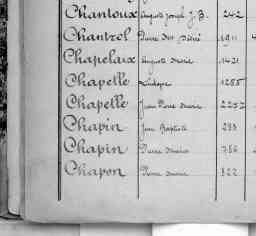 Chantoux Auguste Joseph J. B. 242
Chantrel Pierre 1911
Chapelaix Auguste Marie 1421
Chapelle 1285
Chapelle Jean Pierre Marie 2252
Chapin Jean Baptiste 283
Chapin Pierre 786
Chapon Pierre Marie 822